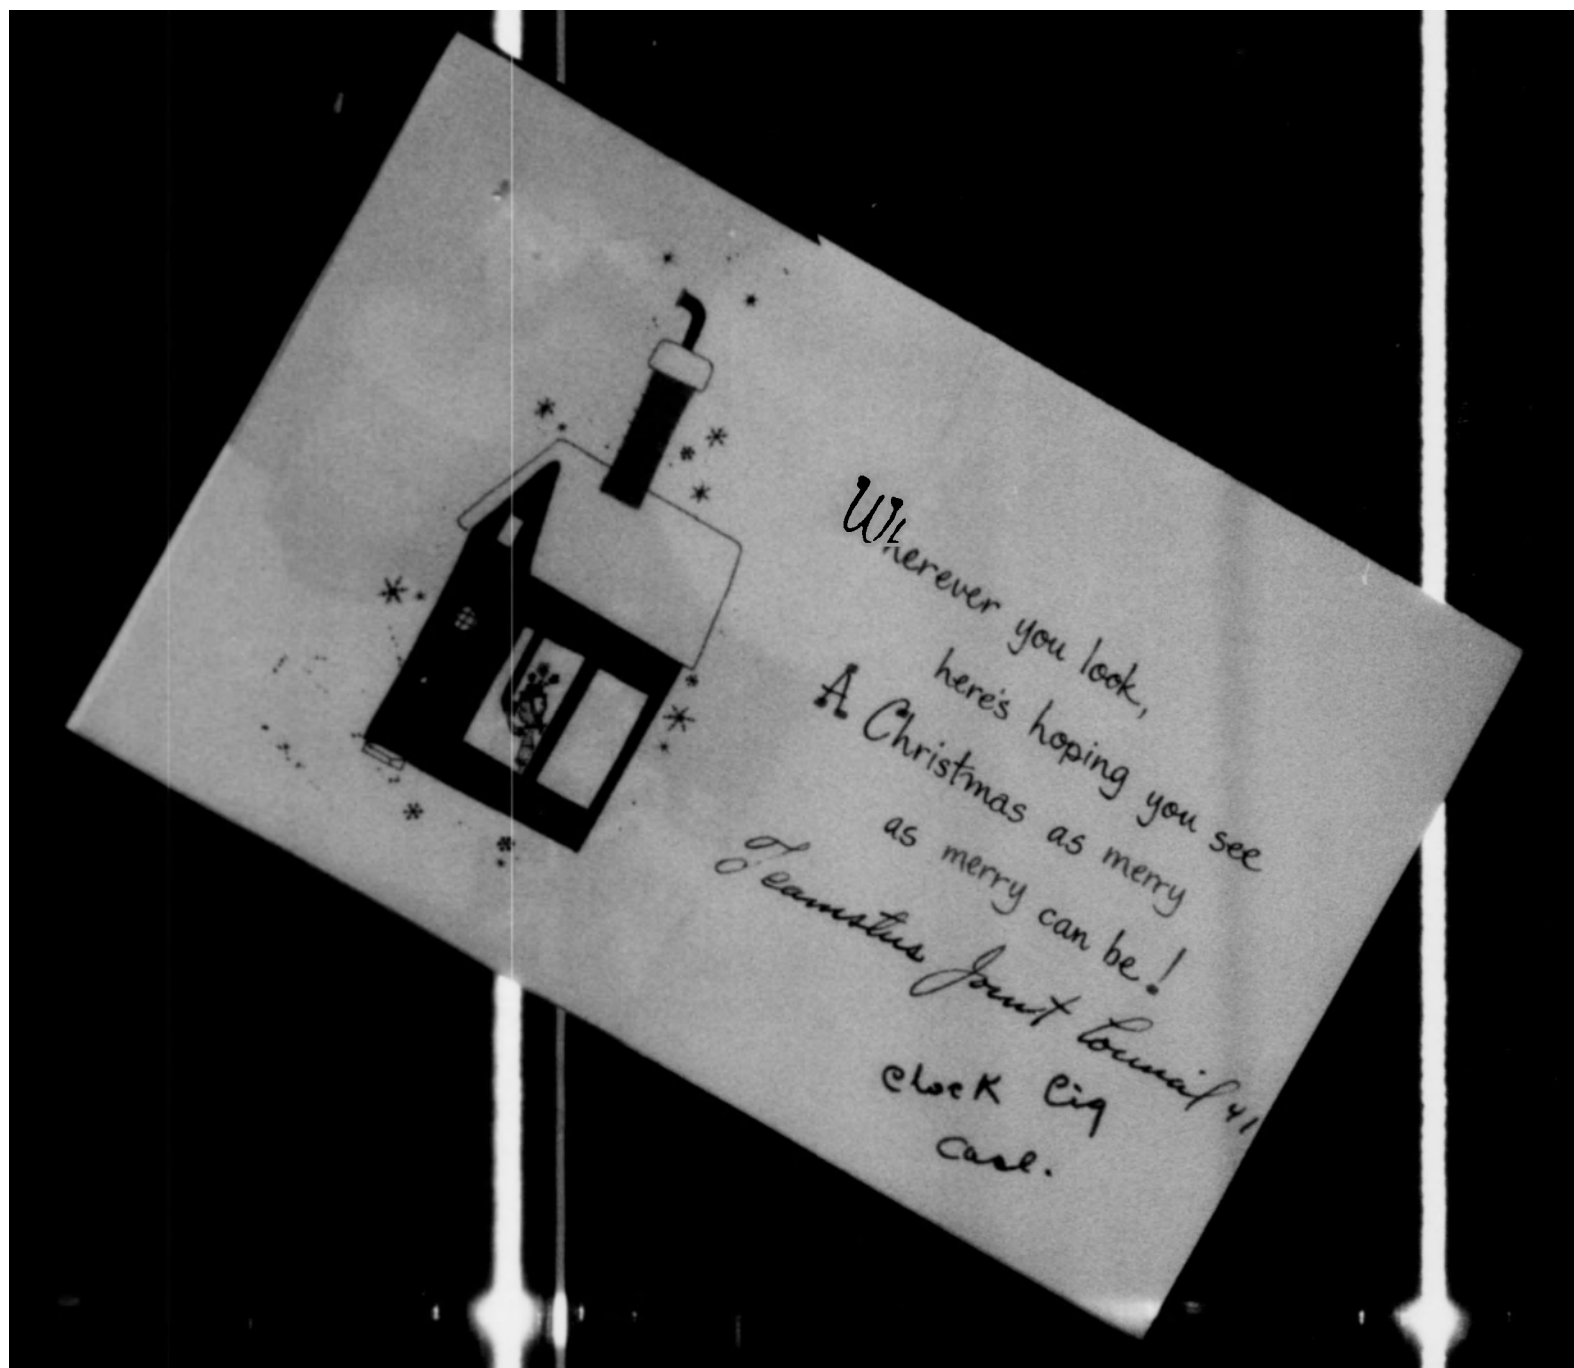 Wherever you look,
here's hoping you see
A Christmas as merry
as merry can be!
Teamsters Joint Council 41
clock Cig
Case.